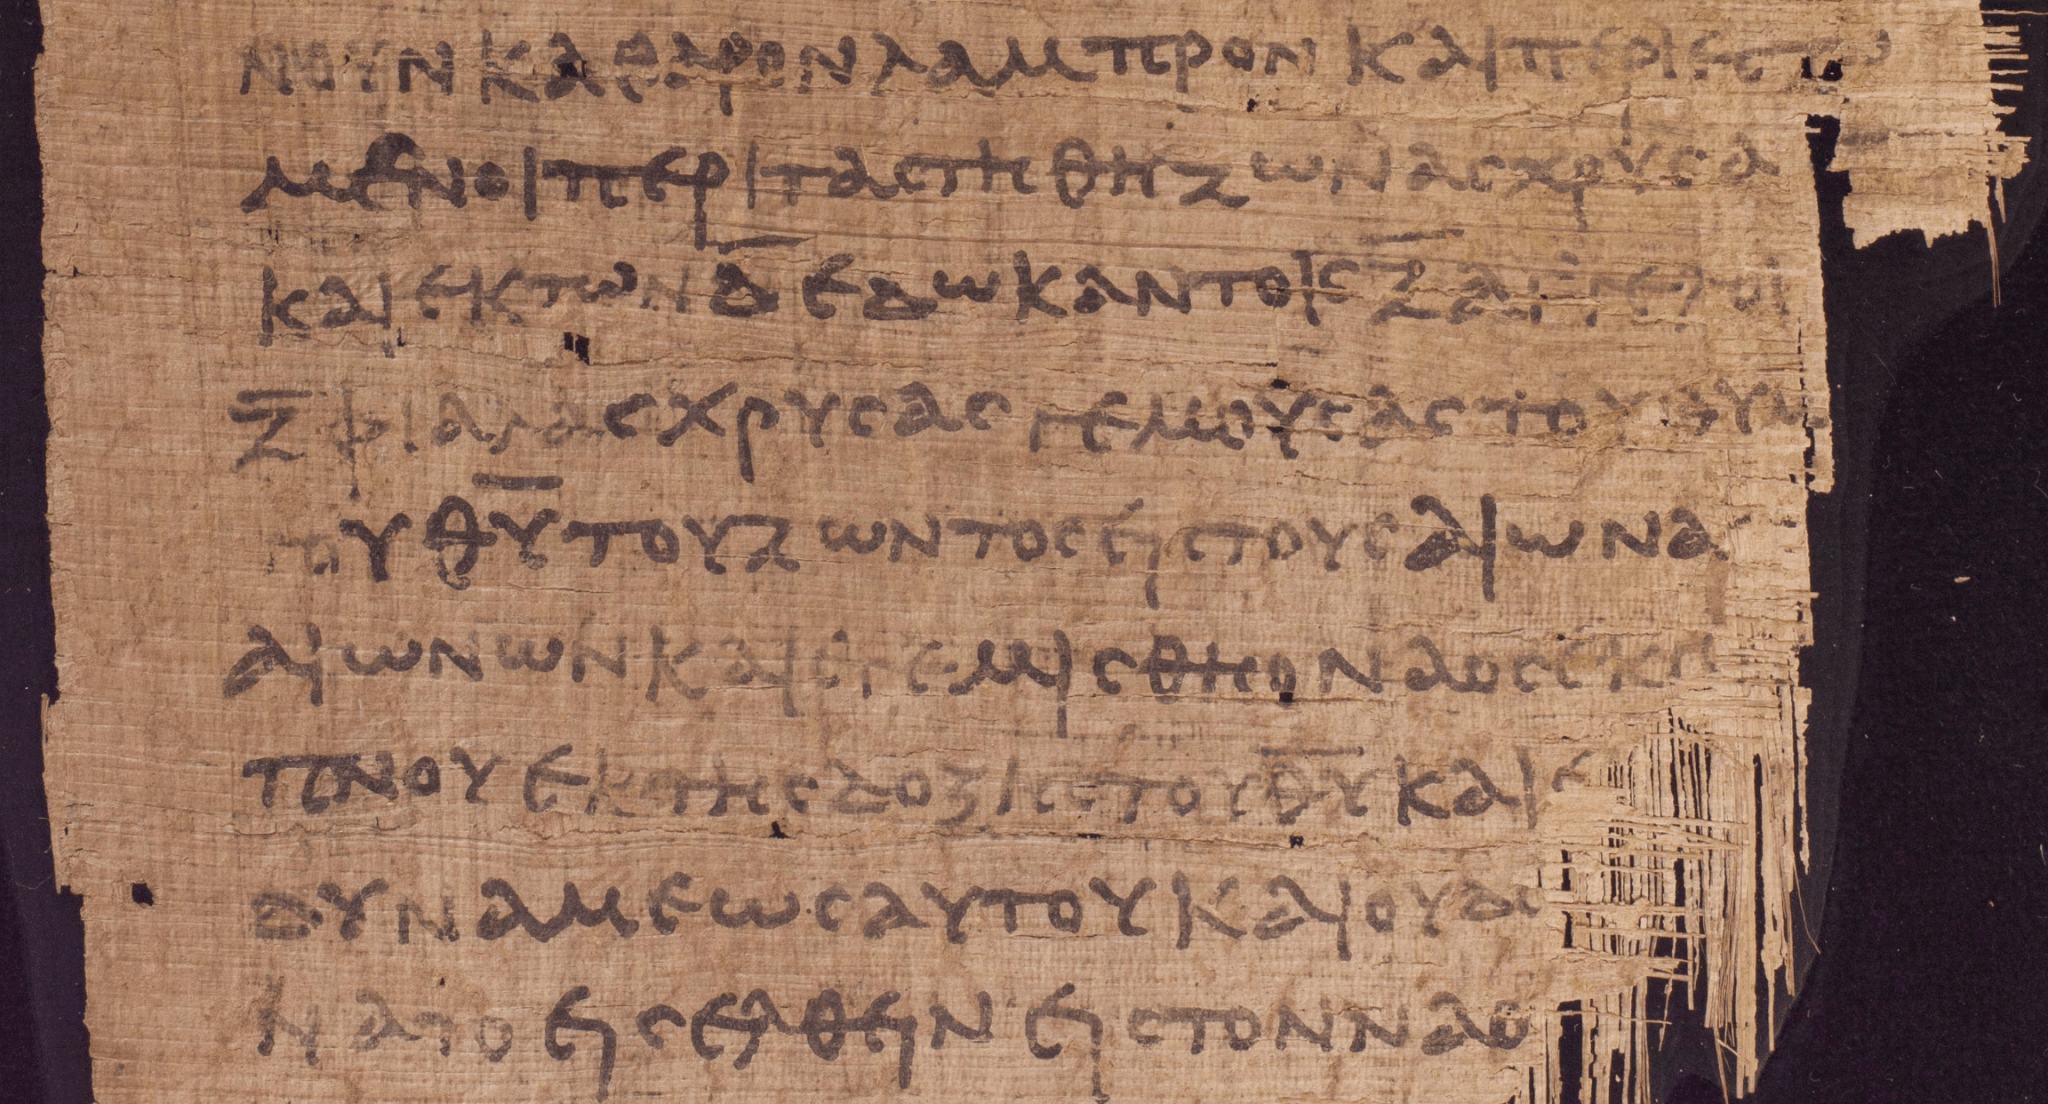 ΝΟΥΝ ΚΑΘΑΡΟΝ ΛΑΜΠΡΟΝ ΚΑΙ ΠΕΡΙΕΣΤΩ
ΜΕΝΟΙ ΠΕΡΙ ΤΑ ΣΤΗΘΗ ΖΩΝΑΣ ΧΡΥΣΑ
ΚΑΙ ΕΚ ΤΩΝ Δ̅ ΕΔΩΚΑΝ ΤΟΙΣ Ζ̅ ΑΓΓΕΛΟΙ
Ζ̅ ΦΙΑΛΑΣ ΧΡΥΣΑΣ ΓΕΜΟΥΣΑΣ ΤΟΥ ΘΥΜ
ΤΟΥ Θ̅Υ̅ ΤΟΥ ΖΩΝΤΟΣ ΕΙΣ ΤΟΥΣ ΑΙΩΝΑΣ
ΑΙΩΝΩΝ ΚΑΙ ΕΓΕΜΙΣΘΗ Ο ΝΑΟΣ ΕΚ
ΠΝΟΥ ΕΚ ΤΗΣ ΔΟΞΗΣ ΤΟΥ Θ̅Υ̅ ΚΑΙ Ε
ΔΥΝΑΜΕΩΣ ΑΥΤΟΥ ΚΑΙ ΟΥΔΙ
ΝΑΤΟ ΕΙΣΕΛΘΕΙΝ ΕΙΣ ΤΟΝ ΝΑΟ